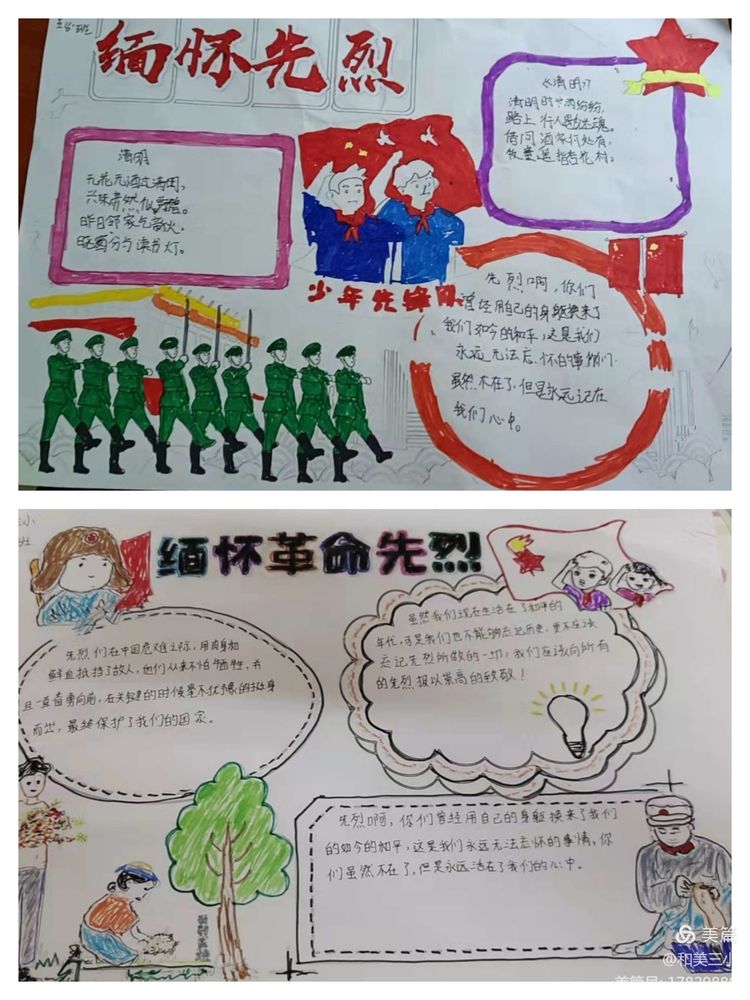 缅怀先烈
清明
无花无酒过清明,
兴味萧然似野僧。
昨日邻家乞新火,
晓窗分与读书灯。
《清明》
清明时节雨纷纷,
路上行人欲断魂。
借问酒家何处有,
牧童遥指杏花村。
少年先锋队
先烈啊,你们
曾经用自己的身躯换来了
我们如今的和平,这是我们
永远无法忘怀的事你们
虽然不在了,但是永远记在
我们心中。
缅怀革命先烈
先烈们在中国危难之际,用肉身和
鲜血抵挡了敌人,他们从来不怕牺牲,并
且一直奋勇向前,在关键的时候毫不犹豫的挺身
而出,最终保护了我们的国家。
虽然我们现在生活在了和平的
年代,可是我们也不能够忘记历史,更不应该
忘记先烈所做的一切,我们应该向所有
的先烈报以崇高的致敬!
先烈啊,你们曾经用自己的身躯换来了我们
的如今的和平,这是我们永远无法忘怀的事情。你
们虽然不在了,但是永远活在了我们的心中。
美篇
@和美三小